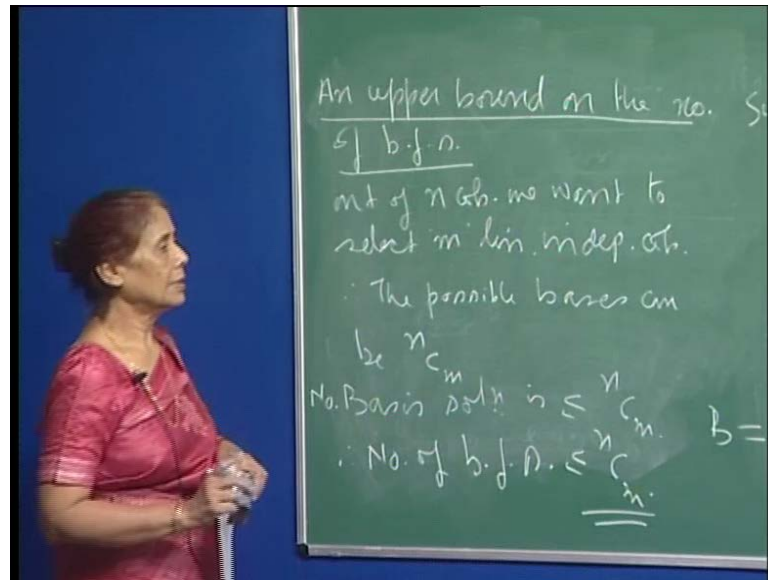 An upper bound on the no.
of b.f.s.
out of n cols. we want to
select m lin. indep. cols.
∴ The possible bases can
be ⁿCₘ
No. Basis solⁿ. is ≤ ⁿCₘ.
∴ No. of b.f.s. ≤ ⁿCₘ.
B =